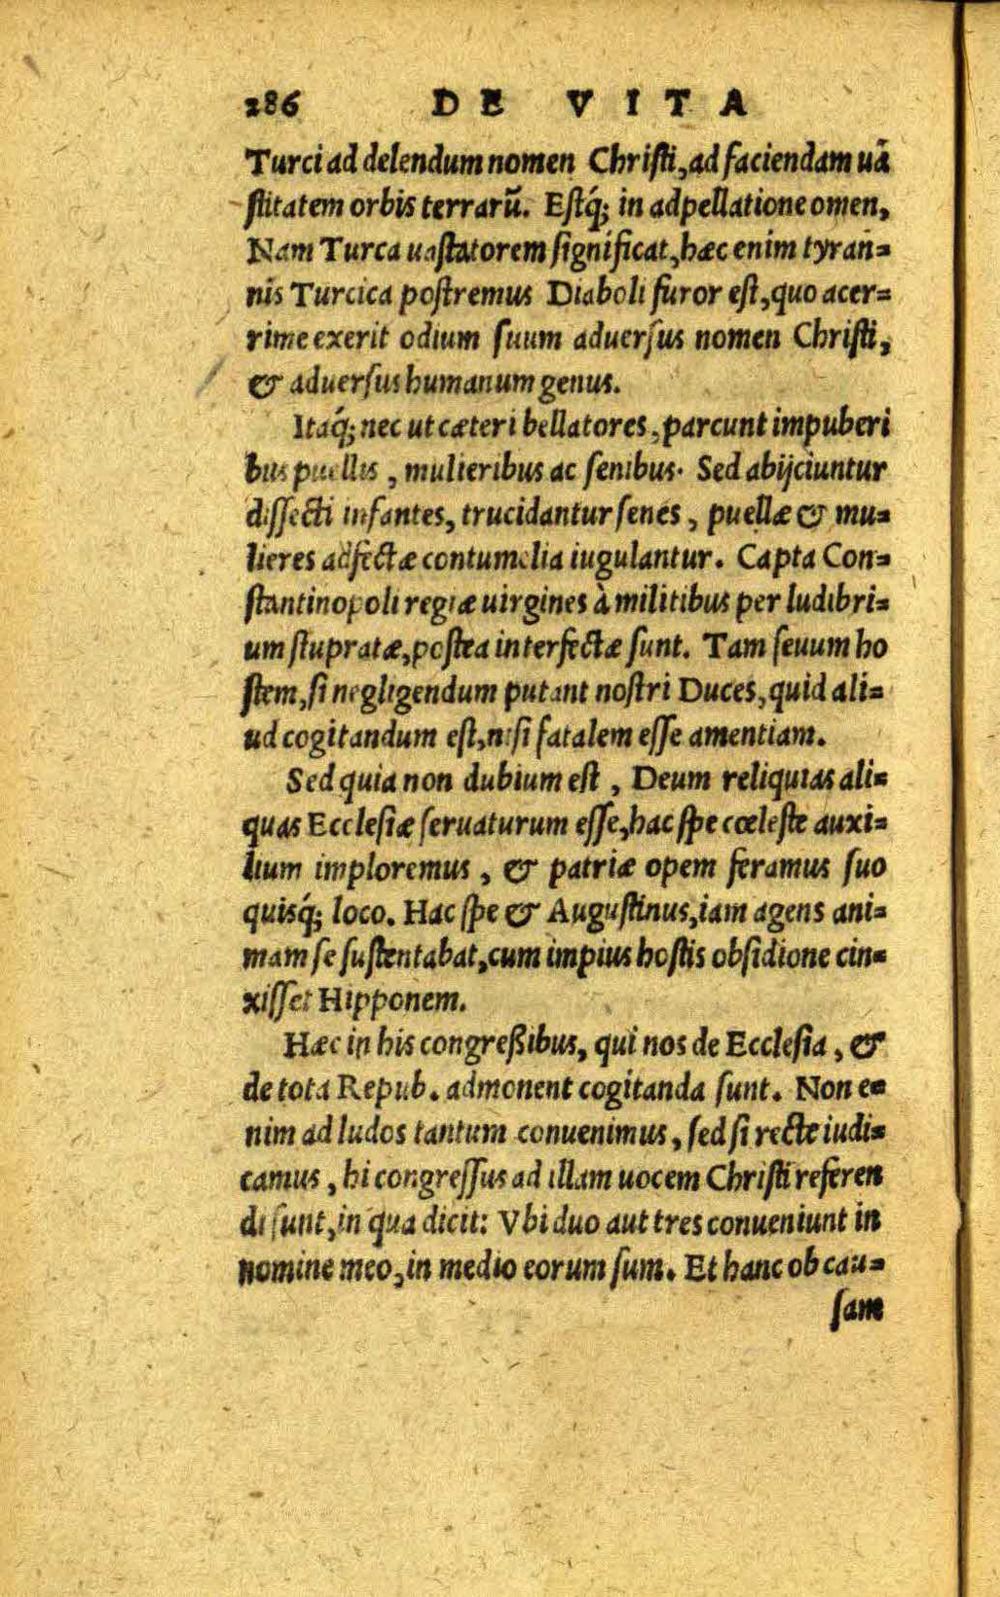 286 DE VITA
Turci ad delendum nomen Christi, ad faciendam uã
stitatem orbis terrarũ. Estq́; in adpellatione omen,
Nam Turca uastatorem significat, hæc enim tyran-
nis Turcica postremus Diaboli furor est, quo acer-
rime exerit odium suum aduersus nomen Christi,
& aduersus humanum genus.
Itaq́; nec ut cæteri bellatores, parcunt impuberi
bus puellis, mulieribus ac senibus. Sed abijciuntur
dissecti infantes, trucidantur senes, puellæ & mu-
lieres adfectæ contumelia iugulantur. Capta Con-
stantinopoli regiæ uirgines à militibus per ludibri-
um stupratæ, postea interfectæ sunt. Tam seuum ho
stem, si negligendum putant nostri Duces, quid ali-
ud cogitandum est, nisi fatalem esse amentiam.
Sed quia non dubium est, Deum reliquias ali-
quas Ecclesiæ seruaturum esse, hac spe cœleste auxi-
lium imploremus, & patriæ opem feramus suo
quisq́; loco. Hac spe & Augustinus, iam agens ani-
mam se sustentabat, cum impius hostis obsidione cin-
xisset Hipponem.
Hæc in his congreßibus, qui nos de Ecclesia, &
de tota Repub. admonent cogitanda sunt. Non e-
nim ad ludos tantum conuenimus, sed si recte iudi-
camus, hi congressus ad illam uocem Christi referen
di sunt, in qua dicit: Vbi duo aut tres conueniunt in
nomine meo, in medio eorum sum. Et hanc ob cau-
sam